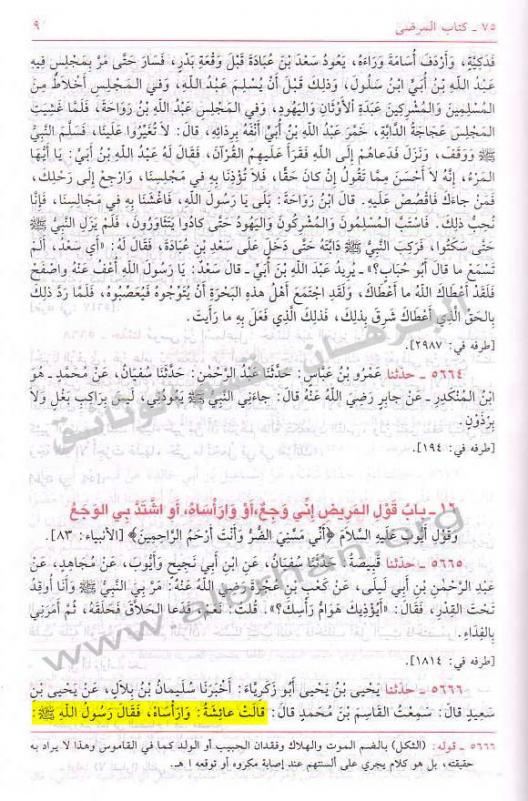 ٧٥ ـ كتاب المرضى
٩
فَدَكِيَّةٍ، وَأَرْدَفَ أُسَامَةَ وَرَاءَهُ، يَعُودُ سَعْدَ بْنَ عُبَادَةَ قَبْلَ وَقْعَةِ بَدْرٍ، فَسَارَ حَتَّى مَرَّ بِمَجْلِسٍ فِيهِ
عَبْدُ اللَّهِ بْنُ أُبَيٍّ ابْنُ سَلُولَ، وَذلِكَ قَبْلَ أَنْ يُسْلِمَ عَبْدُ اللَّهِ، وَفي المَجْلِسِ أَخْلَاطٌ مِنَ
المُسْلِمِينَ وَالمُشْرِكِينَ عَبَدَةِ الأَوْثَانِ وَاليَهُودِ، وَفي المَجْلِسِ عَبْدُ اللَّهِ بْنُ رَوَاحَةَ، فَلَمَّا غَشِيَتِ
المَجْلِسَ عَجَاجَةُ الدَّابَّةِ، خَمَّرَ عَبْدُ اللَّهِ بْنُ أُبَيٍّ أَنْفَهُ بِرِدَائِهِ، قالَ: لَا تُغَبِّرُوا عَلَينَا، فَسَلَّمَ النَّبِيُّ
ﷺ وَوَقَفَ، وَنَزَلَ فَدَعاهُمْ إِلَى اللَّهِ فَقَرَأَ عَلَيهِمُ القُرْآنَ، فَقَالَ لَهُ عَبْدُ اللَّهِ بْنُ أُبَيٍّ: يَا أَيُّهَا
المَرْءُ، إِنَّهُ لَا أَحْسَنَ مِمَّا تَقُولُ إِنْ كانَ حَقًّا، فَلَا تُؤْذِنَا بِهِ في مَجْلِسِنَا، وَارْجِعْ إِلَى رَحْلِكَ،
فَمَنْ جاءَكَ فَاقْصُصْ عَلَيهِ. قالَ ابْنُ رَوَاحَةَ: بَلَى يَا رَسُولَ اللَّهِ، فَاغْشَنَا بِهِ في مَجَالِسِنَا، فَإِنَّا
نُحِبُّ ذلِكَ. فَاسْتَبَّ المُسْلِمُونَ وَالمُشْرِكُونَ وَاليَهُودُ حَتَّى كادُوا يَتَثَاوَرُونَ، فَلَمْ يَزَلِ النَّبِيُّ ﷺ
حَتَّى سَكَتُوا، فَرَكِبَ النَّبِيُّ ﷺ دَابَّتَهُ حَتَّى دَخَلَ عَلَى سَعْدِ بْنِ عُبَادَةَ، فَقَالَ لَهُ: «أَي سَعْدُ، أَلَمْ
تَسْمَعْ ما قالَ أَبُو حُبَابٍ؟» ـ يُرِيدُ عَبْدَ اللَّهِ بْنَ أُبَيٍّ ـ قالَ سَعْدٌ: يَا رَسُولَ اللَّهِ اعْفُ عَنْهُ وَاصْفَحْ
فَلَقَدْ أَعْطَاكَ اللَّهُ ما أَعْطَاكَ، وَلَقَدِ اجْتَمَعَ أَهْلُ هذِهِ البَحْرَةِ أَنْ يُتَوِّجُوهُ فَيُعَصِّبُوهُ، فَلَمَّا رَدَّ ذلِكَ
بِالحَقِّ الَّذِي أَعْطَاكَ شَرِقَ بِذلِكَ، فَذلِكَ الَّذِي فَعَلَ بِهِ ما رَأَيتَ.
[طرفه في: ٢٩٨٧].
٥٦٦٤ ـ حدّثنا عَمْرُو بْنُ عَبَّاسٍ: حَدَّثَنَا عَبْدُ الرَّحْمٰنِ: حَدَّثَنَا سُفيَانُ، عَنْ مُحَمَّدٍ ـ هُوَ
ابْنُ المُنْكَدِرِ ـ عَنْ جابِرٍ رَضِيَ اللَّهُ عَنْهُ قالَ: جاءَنِي النَّبِيُّ ﷺ يَعُودُنِي، لَيسَ بِرَاكِبِ بَغْلٍ وَلَا
بِرْذَوْنٍ.
[طرفه في: ١٩٤].
١٦ ـ بابُ قَوْلِ المَرِيضِ إِنِّي وَجِعٌ، أَوْ وَارَأْسَاهْ، أَوِ اشْتَدَّ بِي الوَجَعُ
وَقَوْلِ أَيُّوبَ عَلَيهِ السَّلَامُ ﴿أَنِّي مَسَّنِيَ الضُّرُّ وَأَنْتَ أَرْحَمُ الرَّاحِمِينَ﴾ [الأنبياء: ٨٣].
٥٦٦٥ ـ حدّثنا قَبِيصَةُ: حَدَّثَنَا سُفيَانُ، عَنِ ابْنِ أَبِي نَجِيحٍ وَأَيُّوبَ، عَنْ مُجَاهِدٍ، عَنْ
عَبْدِ الرَّحْمٰنِ بْنِ أَبِي لَيلَى، عَنْ كَعْبِ بْنِ عُجْرَةَ رَضِيَ اللَّهُ عَنْهُ: مَرَّ بِيَ النَّبِيُّ ﷺ وَأَنَا أُوقِدُ
تَحْتَ القِدْرِ، فَقَالَ: «أَيُؤْذِيكَ هَوَامُّ رَأْسِكَ؟» قُلتُ: نَعَمْ، فَدَعا الحَلَّاقَ فَحَلَقَهُ، ثُمَّ أَمَرَنِي
بِالفِدَاءِ.
[طرفه في: ١٨١٤].
٥٦٦٦ ـ حدّثنا يَحْيَى بْنُ يَحْيَى أَبُو زَكَرِيَّاءَ: أَخْبَرَنَا سُلَيمَانُ بْنُ بِلَالٍ، عَنْ يَحْيَى بْنِ
سَعِيدٍ قالَ: سَمِعْتُ القَاسِمَ بْنَ مُحَمَّدٍ قالَ: قالَتْ عائِشَةُ: وَارَأْسَاهْ، فَقَالَ رَسُولُ اللَّهِ ﷺ:
٥٦٦٦ ـ قوله: (الثكل) بالضم الموت والهلاك وفقدان الحبيب أو الولد كما في القاموس وهذا لا يراد به
حقيقته، بل هو كلام يجري على ألسنتهم عند إصابة مكروه أو توقعه اهـ.
www.alburhan.org